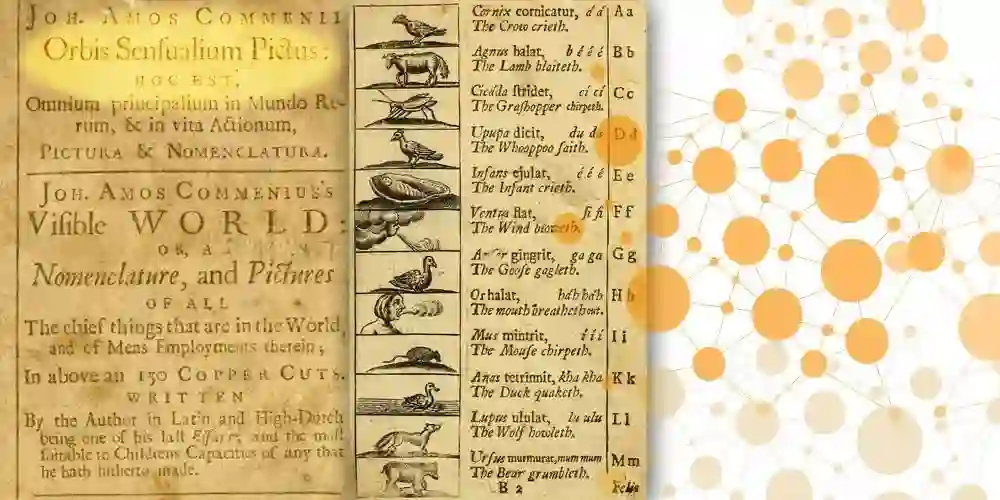 JOH. AMOS COMMENII
Orbis Senſualium Pictus:
HOC EST,
Omnium principalium in Mundo Re-
rum, & in vita Actionum,
PICTURA & NOMENCLATURA.
JOH. AMOS COMMENIUS's
Viſible WORLD:
OR, A
Nomenclature, and Pictures
OF ALL
The chief things that are in the World,
and of Mens Employments therein;
In above an 150 COPPER CUTS.
WRITTEN
By the Author in Latin and High-Dutch
being one of his laſt Eſſays, and the moſt
ſuitable to Childrens Capacities of any that
he hath hitherto made.
Cornix cornicatur, á á A a
The Crow crieth.
Agnus balat, b é é é B b
The Lamb blaiteth.
Cicàda ſtridet, cí cí C c
The Graſhopper chirpeth.
Upupa dicit, du du D d
The Whooppoo ſaith.
Infans ejulat, é é é E e
The Infant crieth.
Ventus flat, fi fi F f
The Wind bloweth.
gingrit, ga ga G g
The Gooſe gagleth.
Os halat, háh háh H h
The mouth breatheth out.
Mus mintrit, í í í I i
The Mouſe chirpeth.
Anas tetrinnit, kha kha K k
The Duck quaketh.
Lupus ululat, lu ulu L l
The Wolf howleth.
Urſus murmurat, mum mum M m
The Bear grumbleth.
B 2 Felis